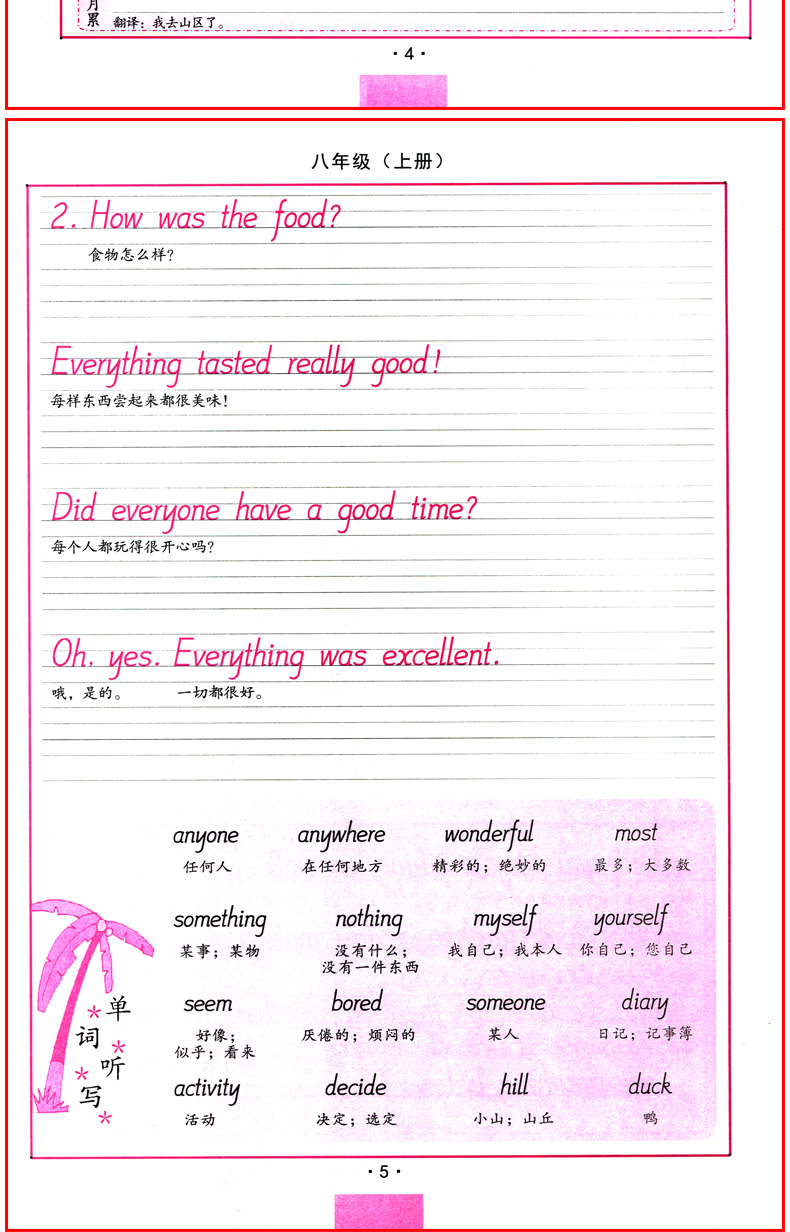 月
累 翻译：我去山区了。
·4·
八年级（上册）
2. How was the food?
食物怎么样?
Everything tasted really good!
每样东西尝起来都很美味!
Did everyone have a good time?
每个人都玩得很开心吗?
Oh, yes. Everything was excellent.
哦，是的。 一切都很好。
anyone anywhere wonderful most
任何人 在任何地方 精彩的；绝妙的 最多；大多数
something nothing myself yourself
某事；某物 没有什么； 我自己；我本人 你自己；您自己
没有一件东西
seem bored someone diary
好像； 厌倦的；烦闷的 某人 日记；记事簿
似乎；看来
activity decide hill duck
活动 决定；选定 小山；山丘 鸭
单
词
听
写
·5·